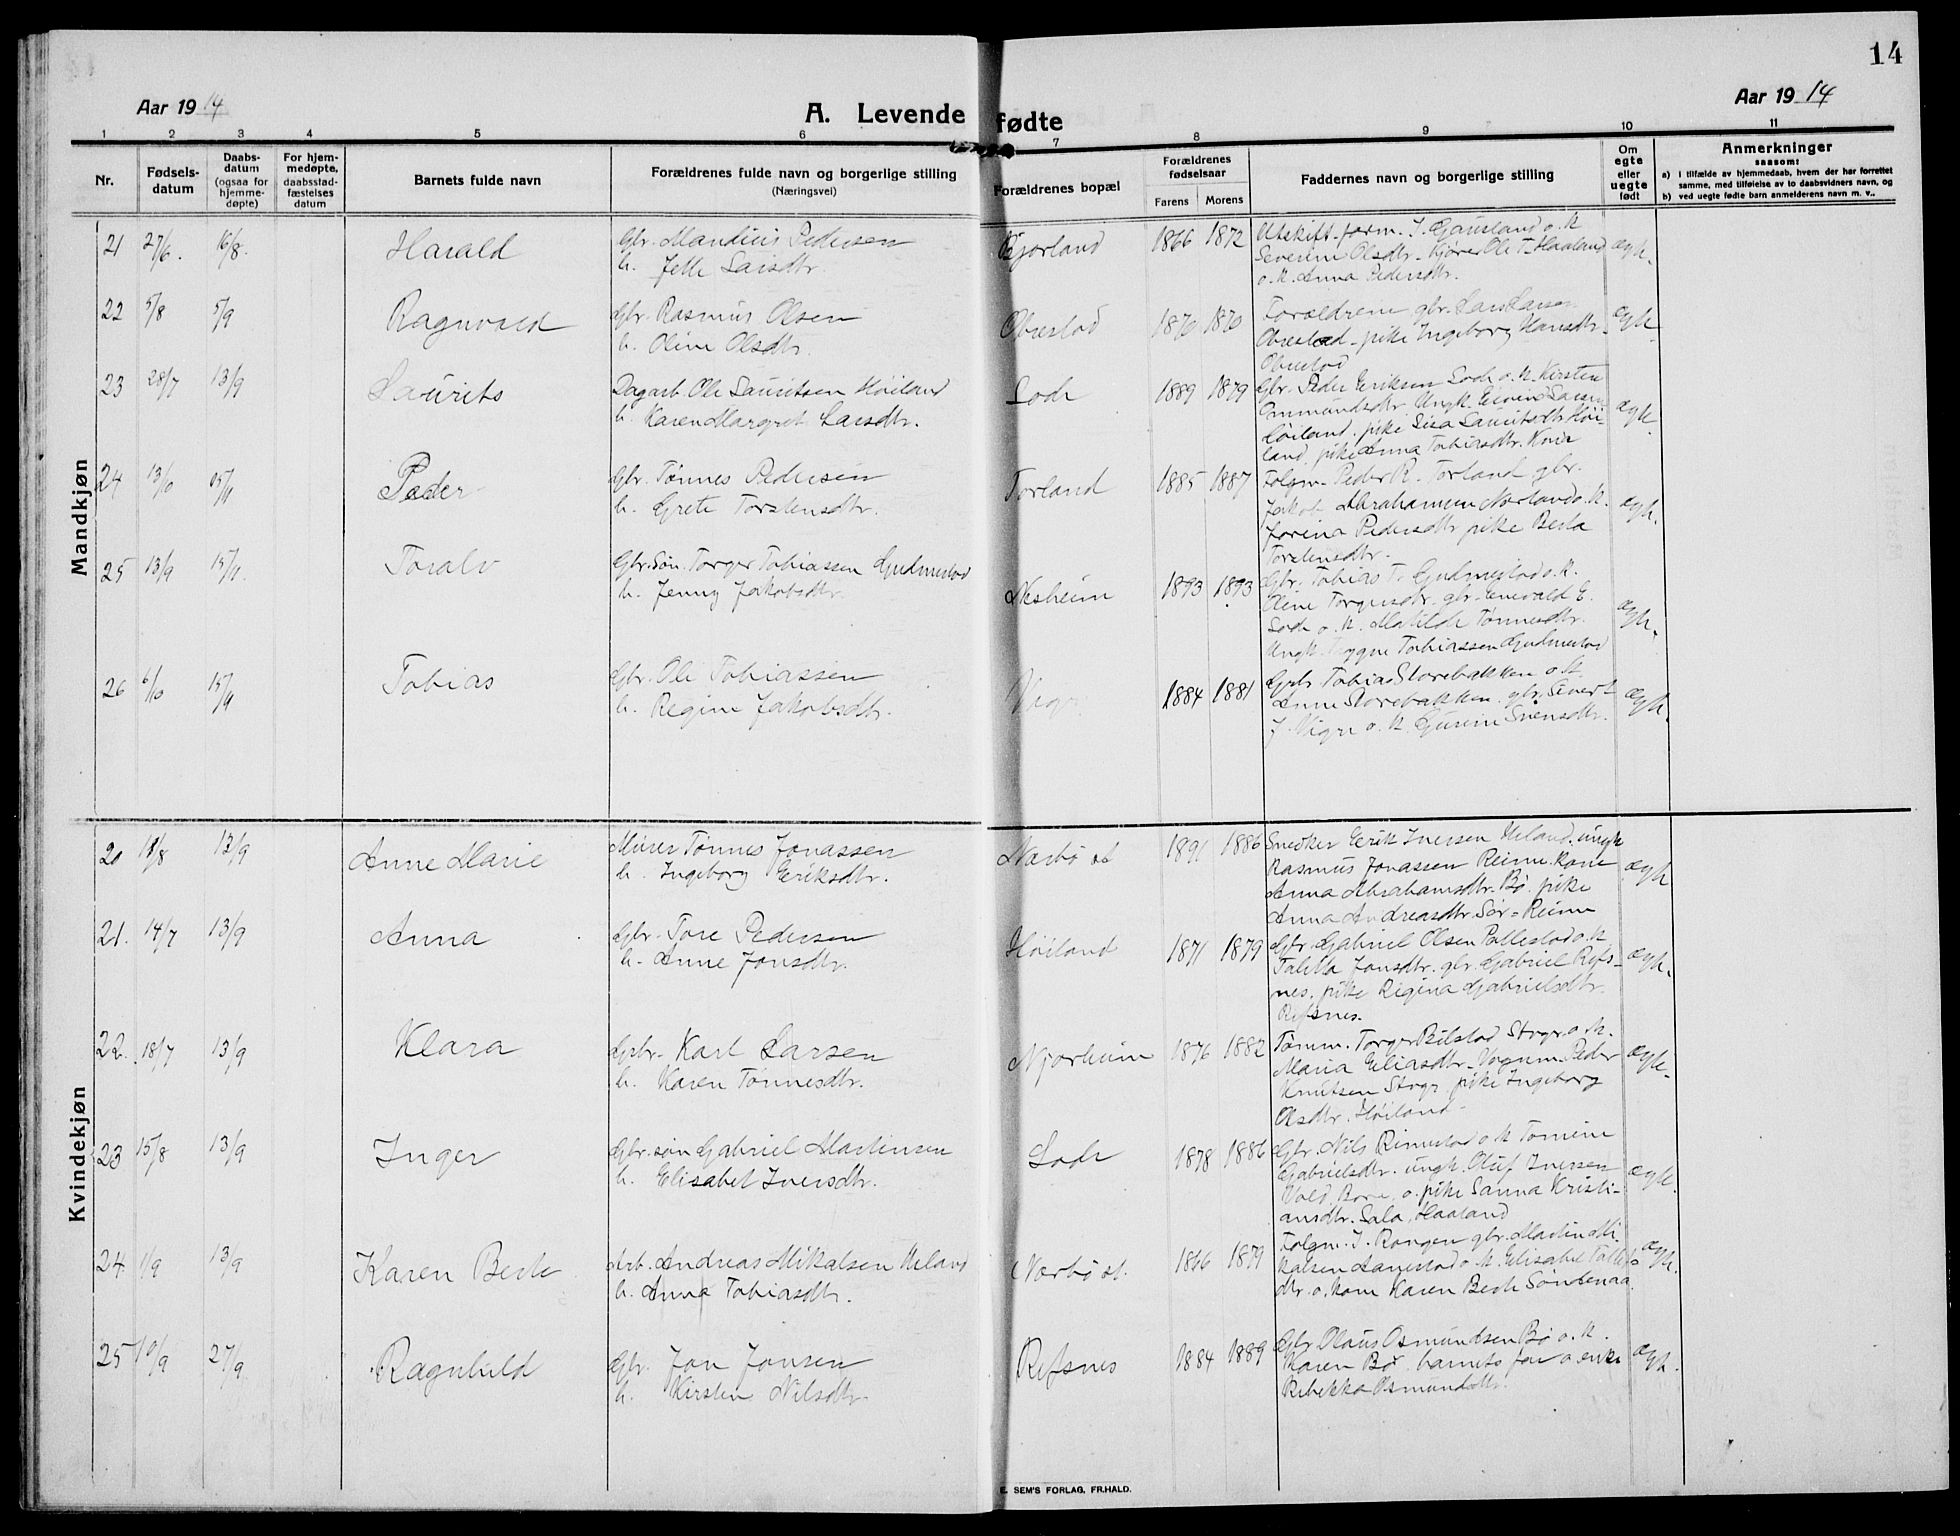 14
Aar 19 14
A. Levende fødte
Aar 19 14
1 2 3 4 5 6 7 8 9 10 11
Nr.
Fødsels-
datum
Daabs-
datum
(ogsaa for
hjemme-
døpte)
For hjem-
medøpte,
daabsstad-
fæstelses
datum
Barnets fulde navn
Forældrenes fulde navn og borgerlige stilling
(Næringsvei)
Forældrenes bopæl
Forældrenes
fødselsaar
Farens Morens
Faddernes navn og borgerlige stilling
Om
egte
eller
uegte
født
Anmerkninger
saasom:
a) i tilfælde av hjemmedaab, hvem der har forrettet
samme, med tilføielse av to daabsvidners navn, og
b) ved uegte fødte barn anmelderens navn m. v..
Mandkjøn
21 27/6. 16/8. Harald
Gbr. Mandius Pedersen
h. Jette Larsdtr.
Bjorland 1866 1872
Utskift.form. J. Gausland o. k
Severine Olsdtr. Kjører Ole T. Haaland
o. k. Anna Pedersdtr.
ægte.
22 5/8 5/9 Ragnvald
Gbr. Rasmus Olsen
h. Oline Olsdtr.
Obrestad 1870 1870
Forældrene gbr. Lars Larsen
Obrestad. pike Ingeborg Hansdtr.
Obrestad
ægte.
23 28/7 13/9 Laurits
Dagarb. Ole Lauritsen Høiland
h. Karen Margret Larsdtr.
Lode 1889 1879
Gbr. Peder Eriksen Lode o. k. Kirsten
Ommundsdtr. Ungk.
Høiland. pike Lisa Lauritsdtr. Høi-
land, pike Anna Tobiasdtr.
ægte.
24 13/10 15/11 Peder
Gbr. Tønnes Pedersen
h. Grete Torstensdtr.
Torland 1885 1887
Folgm. Peder R. Torland gbr.
Jakob Abrahamsen Norland o. k.
Jorina Pedersdtr pike Berta
Torstensdtr.
ægte.
25 13/9 15/11. Toralv
Gbr. søn. Torger Tobiassen Gudmestad
h. Jenny Jakobsdtr.
1893 1893
Gbr. Tobias T. Gudmestad o. k.
Oline Torgersdtr. gbr. Enevald E.
Lode o. k. Matilde Tønnesdtr.
Ungk. Trygve Tobiassen Gudmestad
ægte.
26 6/10 15/11 Tobias
Gbr. Ole Tobiassen
h. Regine Jakobsdtr.
Vigre 1884 1881
Gbr Tobias Storebakken o. k.
Anne Storebakken. gbr. Sivert
J. Vigre o. k. Gurine Svensdtr.
ægte.
Kvindekjøn
20 11/8 13/9 Anne Marie
Murer Tønnes Jonassen
h. Ingeborg Eriksdtr.
Nærbø st 1891 1886
Snedker Erik Iversen Heland. ungk
Rasmus Jonassen Reime. Kone
Anna Abrahamsdtr. Bø. pike
Anna Andreasdtr. Sør=Reime
ægte
21. 14/7 13/9 Anna
Gbr. Tore Pedersen
h. Anne Jonsdtr.
Høiland 1871 1879
Gbr. Gabriel Olsen Pollestad o. k
Talette Jonsdtr. gbr. Gabriel Refs-
nes. pike Regina Gabrielsdtr.
Refsnes.
ægte.
22. 18/7 13/9 Klara
Gbr. Karl Larsen
h. Karen Tønnesdtr.
Njærheim 1876 1882
Tømm. Torger Bilstad Stogr. o. k.
Maria Eliasdtr. Vognm. Peder
Knutsen Stogr. pike Ingeborg
Olsdtr. Høiland.
ægte.
23 15/8 13/9 Inger
Gbr. søn Gabriel Martinsen
h. Elisabet Iversdtr.
Lode 1878 1886
Gbr. Nils Rimestad o. k Tomine
Gabrielsdtr. ungk. Oluf Iversen
Vold, Bore, o. pike Sanna Kristi-
ansdtr. Sala, Haaland
ægte.
24. 1/9 13/9 Karen Berte
Arb. Andreas Mikalsen Heland
h. Anna Tobiasdtr.
Nærbø st. 1866 1879
Folgm. J. Rangen gbr. Martin Mi-
kalsen Aanestad o. k. Elisabet
dtr. o. kone Karen Berte Søndenaa
ægte.
25 10/9 27/9 Ragnhild
Gbr. Jon Jonsen
h. Kirsten Nilsdtr.
Refsnes 1884 1889
Gbr. Olaus Osmundsen Bø o. k.
Karen Bø. barnets far o enke
Rebekka Osmundsdtr.
ægte.
E. SEM'S FORLAG, FR.HALD.